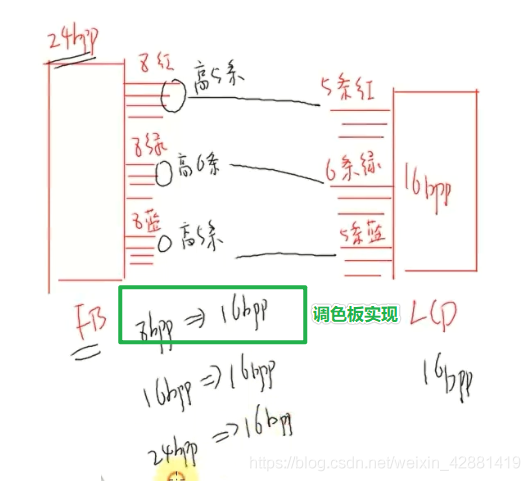 24bpp
8红
高5条
5条红
8绿
高6条
6条绿
16bpp
8蓝
高5条
5条蓝
FB
8bpp => 16bpp
调色板实现
LCD
16bpp => 16bpp
16bpp
24bpp => 16bpp
https://blog.csdn.net/weixin_42881419